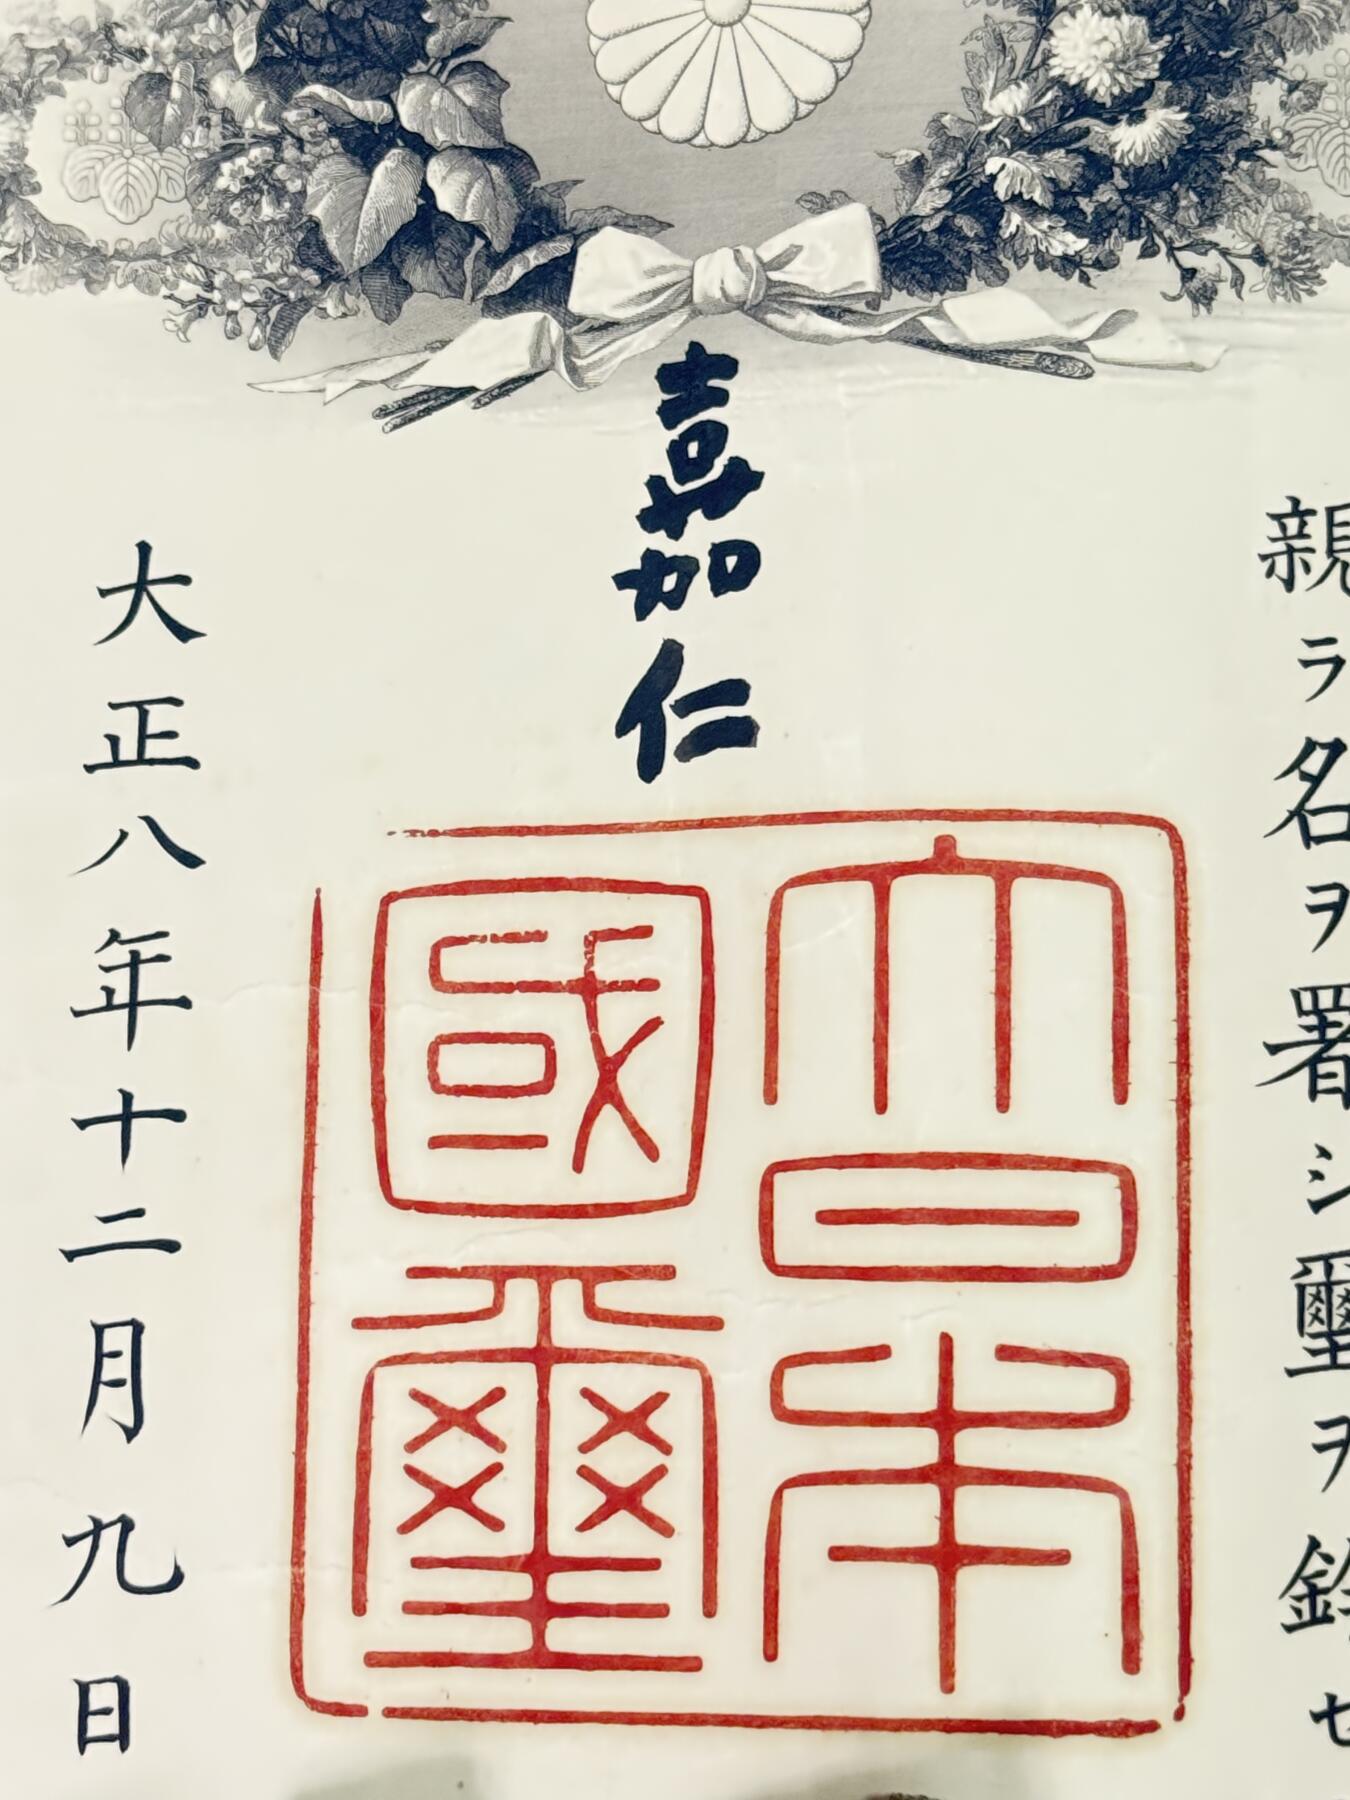 親ラ名ヲ署シ璽ヲ鈐セ
嘉仁
大日本
國璽
大正八年十二月九日